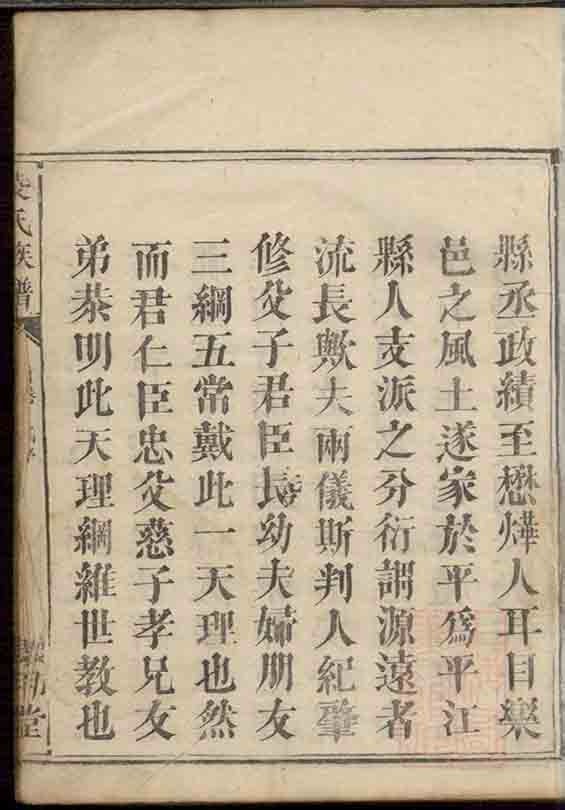 縣丞政績至懋燁人耳目樂
邑之風土遂家於平為平江
縣人支派之分衍謂源遠者
流長歟夫兩儀斯判人紀肇
修父子君臣長幼夫婦朋友
三綱五常戴此一天理也然
而君仁臣忠父慈子孝兄友
弟恭明此天理綱維世教也
氏族譜
堂